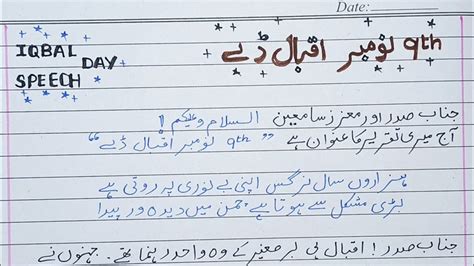 Date:
IQBAL DAY SPEECH
9th نومبر اقبال ڈے
جناب صدر اور معزز سامعین السلام وعلیکم!
آج میری تقریر کا عنوان ہے "9th نومبر اقبال ڈے"
ہزاروں سال نرگس اپنی بے نوری پہ روتی ہے
بڑی مشکل سے ہوتا ہے چمن میں دیدہ ور پیدا
جناب صدر! اقبال ہی بر صغیر کے وہ واحد رہنما تھے۔ جنہوں نے